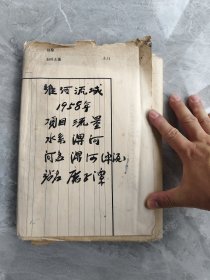 淮河流域
1958年
项目 流量
水系 淠河
河名 淠河
站名 磨子潭